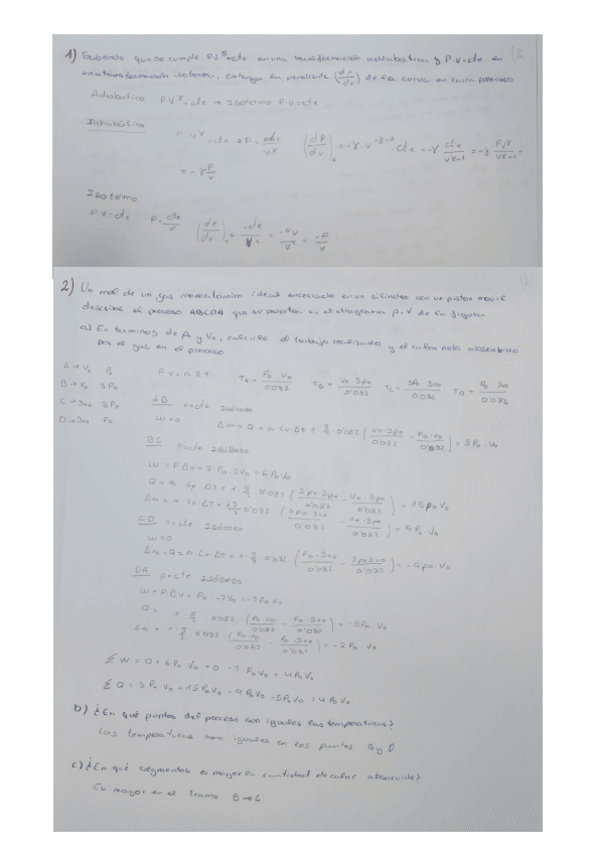 1) Sabiendo que se cumple PVᵞ=cte en una transformación adiabática y P·V=cte en
una transformación isoterma, obtenga la pendiente (dP/dV) de la curva en cada proceso
Adiabático PVᵞ=cte → Isotermo P·V=cte
P·Vᵞ=cte → P=cte/Vᵞ (dP/dV) = -γ V^-γ-1 cte = -γ cte/Vᵞ⁺¹ = -γ PVᵞ/Vᵞ⁺¹ =
= -γ P/V
Isotermo
P·V=cte P=cte/V (dP/dV) = -cte/V² = -PV/V² = -P/V
2) Un mol de un gas monoatómico ideal encerrado en un cilindro con un pistón móvil
describe el proceso ABCDA que se muestra en el diagrama P-V de la figura
a) En terminos de P₀ y V₀, calcule el trabajo realizado y el calor neto absorbido
por el gas en el proceso
A → V₀ P₀ P·V=nRT T = P₀·V₀/0'082 T_B = V₀·3P₀/0'082 T_C = 3P₀·3V₀/0'082 T_D = P₀·3V₀/0'082
B → V₀ 3P₀
C → 3V₀ 3P₀
D → 3V₀ P₀
AB V=cte Isócoro
W=0 Δu=Q=n·Cv·ΔT = 1·3/2·0'082 (V₀·3P₀/0'082 - P₀·V₀/0'082) = 3P₀·V₀
BC P=cte Isóbaro
W=P·ΔV=3·P₀·2V₀=6P₀V₀
Q=n·Cp·ΔT = 1·5/2·0'082 (3P₀·3V₀/0'082 - V₀·3P₀/0'082) = 15P₀V₀
Δu=n·Cv·ΔT = 1·3/2·0'082 (3P₀·3V₀/0'082 - V₀·3P₀/0'082) = 9P₀·V₀
CD V=cte Isócoro
W=0
Δu=Q=n·Cv·ΔT = 1·3/2·0'082 (P₀·3V₀/0'082 - 3P₀3V₀/0'082) = -9P₀·V₀
DA P=cte Isóbaro
W=P·ΔV=P₀·-2V₀=-2P₀V₀
Q= 1·5/2·0'082 (P₀·V₀/0'082 - P₀·3V₀/0'082) = -5P₀·V₀
Δu= 1·3/2·0'082 (P₀·V₀/0'082 - P₀·3V₀/0'082) = -3P₀·V₀
ΣW=0+6P₀·V₀+0-2P₀V₀=4P₀V₀
ΣQ=3P₀V₀+15P₀V₀-9P₀V₀-5P₀V₀=4P₀V₀
b) ¿En qué puntos del proceso son iguales las temperaturas?
Las temperaturas son iguales en los puntos B y D
c) ¿En qué segmentos es mayor la cantidad de calor absorvido?
Es mayor en el tramo B→C